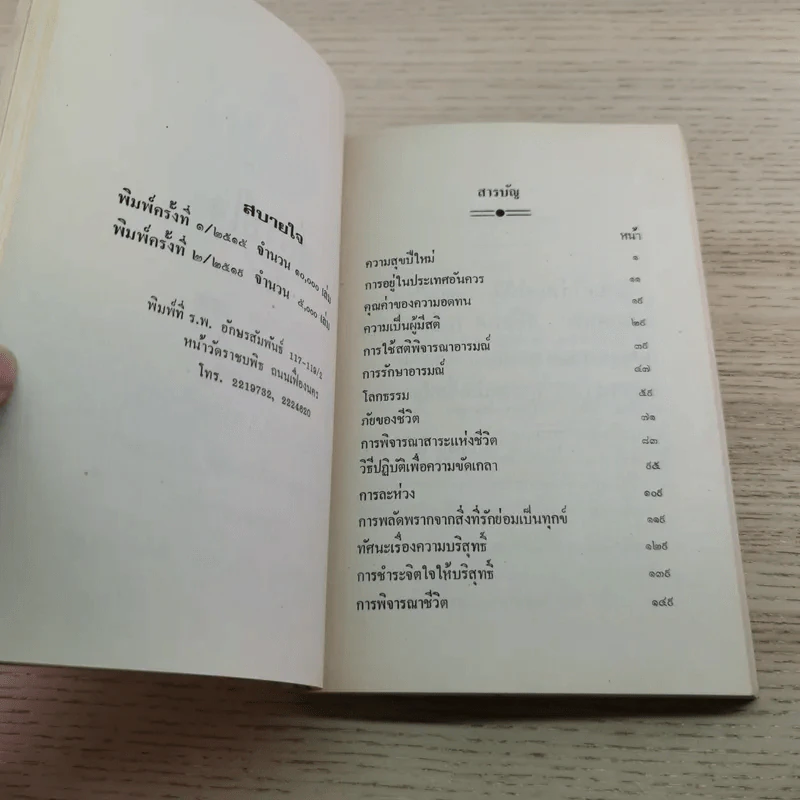 สบายใจ
พิมพ์ครั้งที่ ๑/๒๕๑๕ จำนวน ๑๐,๐๐๐ เล่ม
พิมพ์ครั้งที่ ๒/๒๕๑๕ จำนวน ๕,๐๐๐ เล่ม
พิมพ์ที่ ร.พ. อักษรสัมพันธ์ 117-119/1
หน้าวัดราชบพิธ ถนนเฟื่องนคร
โทร. 2219732, 2224620
สารบัญ
หน้า
ความสุขปีใหม่ ๑
การอยู่ในประเทศอันควร ๑๑
คุณค่าของความอดทน ๑๙
ความเป็นผู้มีสติ ๒๙
การใช้สติพิจารณาอารมณ์ ๓๙
การรักษาอารมณ์ ๔๗
โลกธรรม ๕๙
ภัยของชีวิต ๗๑
การพิจารณาสาระแห่งชีวิต ๘๓
วิธีปฏิบัติเพื่อความขัดเกลา ๙๕
การละห่วง ๑๐๙
การพลัดพรากจากสิ่งที่รักย่อมเป็นทุกข์ ๑๑๙
ทัศนะเรื่องความบริสุทธิ์ ๑๒๙
การชำระจิตใจให้บริสุทธิ์ ๑๓๙
การพิจารณาชีวิต ๑๔๙